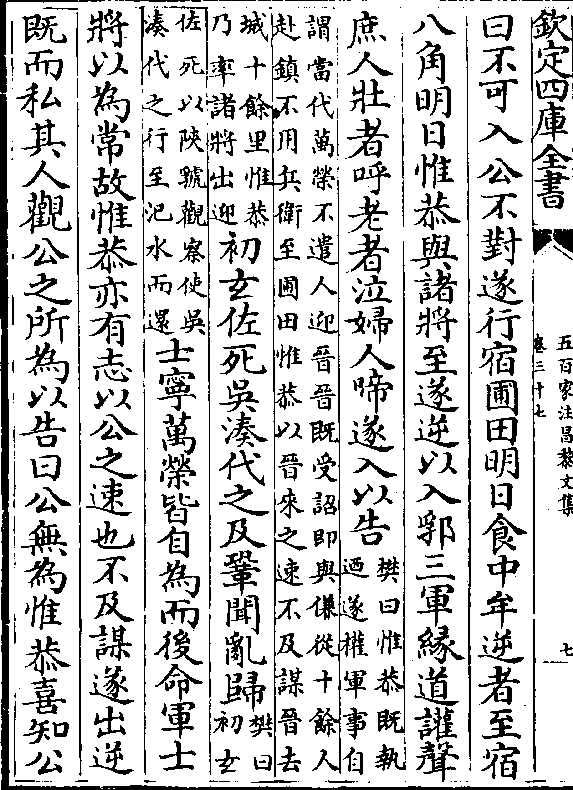 欽定四庫全書
五百家注昌黎文集
卷三十七
七
曰不可入公不對遂行宿圃田明日食中牟逆者至宿
八角明日惟恭與諸將至遂逆以入郛三軍緣道讙聲
庶人壯者呼老者泣婦人啼遂入以告
樊曰惟恭既執
迺遂權軍事自
謂當代萬榮不遣人迎晉晉既受詔即與傔從十餘人
赴鎮不用兵衛至圃田惟恭以晉來之速不及謀晉去
城十餘里惟恭
乃率諸將出迎
初玄佐死吳湊代之及鞏聞亂歸
樊曰
初玄
佐死以陜虢觀察使吳
湊代之行至汜水而還
士寧萬榮皆自為而後命軍士
將以為常故惟恭亦有志以公之速也不及謀遂出逆
既而私其人觀公之所為以告曰公無為惟恭喜知公